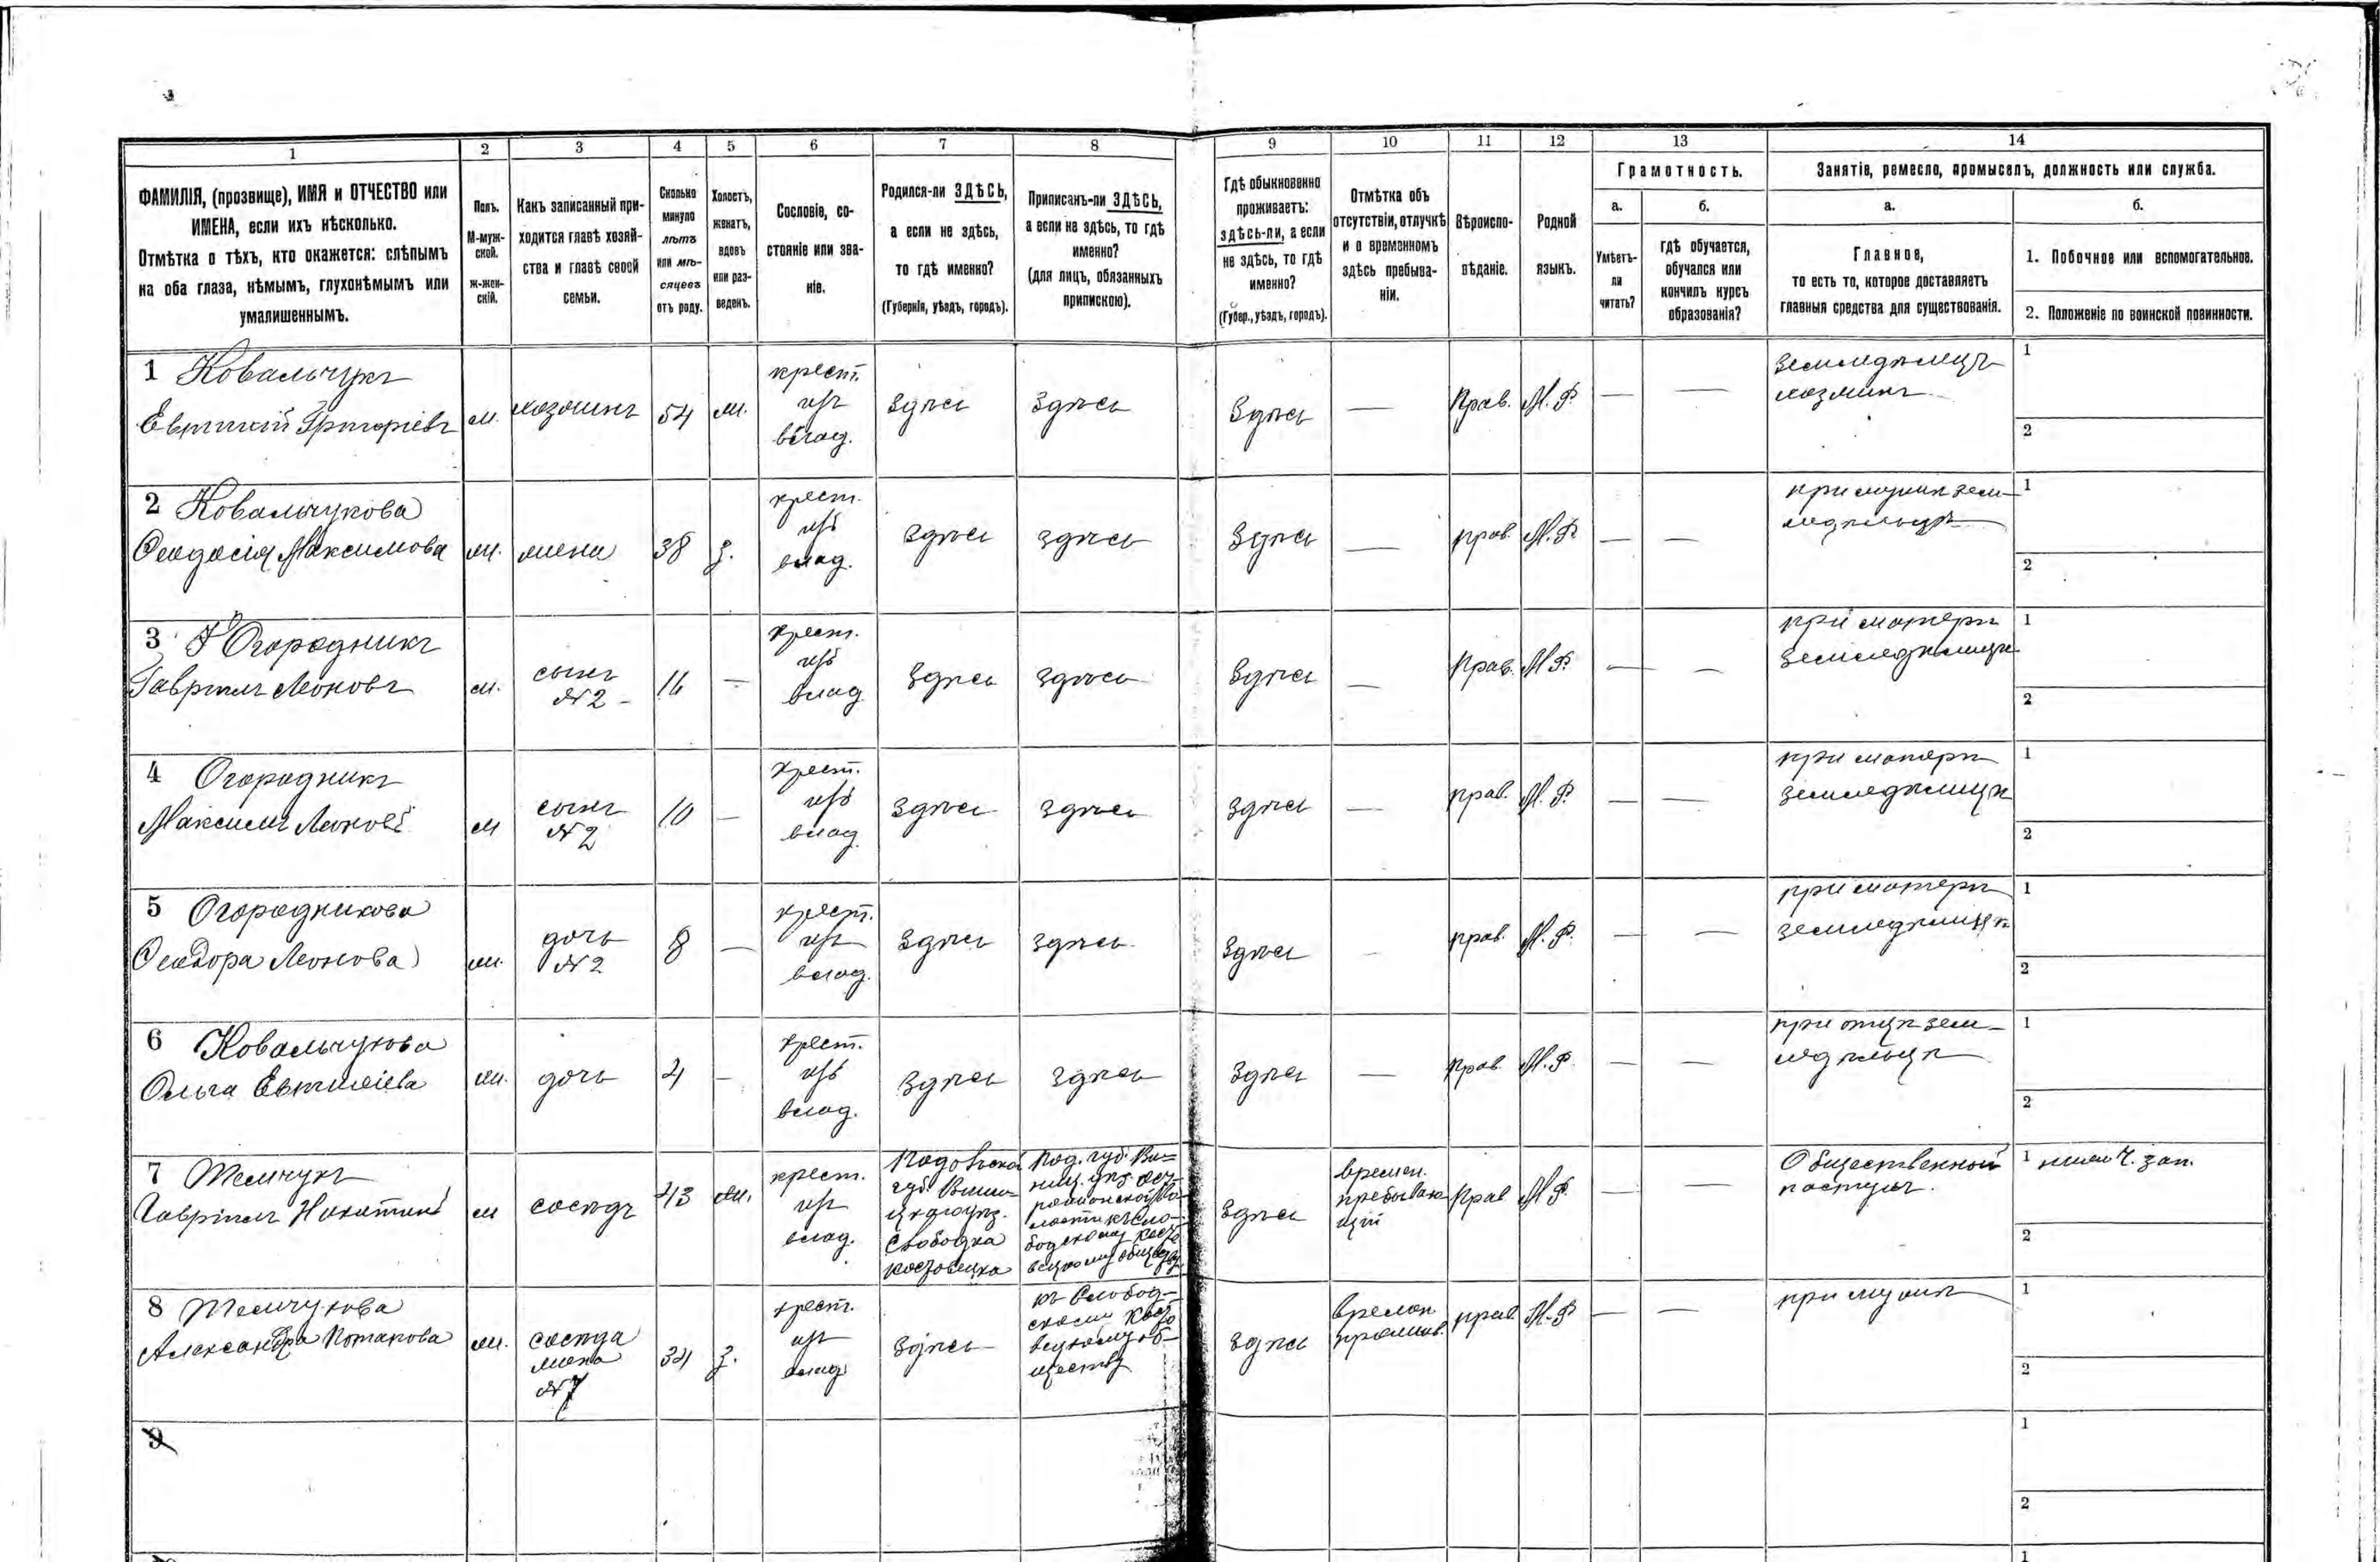 1 2 3 4 5 6 7 8 9 10 11 12 13 14
ФАМИЛІЯ, (прозвище), ИМЯ и ОТЧЕСТВО или
ИМЕНА, если ихъ нѣсколько.
Отмѣтка о тѣхъ, кто окажется: слѣпымъ
на оба глаза, нѣмымъ, глухонѣмымъ или
умалишеннымъ.
Полъ.
М-муж-
ской.
ж-жен-
скій.
Какъ записанный при-
ходится главѣ хозяй-
ства и главѣ своей
семьи.
Сколько
минуло
лѣтъ
или мѣ-
сяцевъ
отъ роду.
Холостъ,
женатъ,
вдовъ
или раз-
веденъ.
Сословіе, со-
стояніе или зва-
ніе.
Родился-ли ЗДѢСЬ,
а если не здѣсь,
то гдѣ именно?
(Губернія, уѣздъ, городъ).
Приписанъ-ли ЗДѢСЬ,
а если не здѣсь, то гдѣ
именно?
(для лицъ, обязанныхъ
припискою).
Гдѣ обыкновенно
проживаетъ:
здѣсь-ли, а если
не здѣсь, то гдѣ
именно?
(Губер., уѣздъ, городъ).
Отмѣтка объ
отсутствіи, отлучкѣ
и о временномъ
здѣсь пребыва-
ніи.
Вѣроиспо-
вѣданіе.
Родной
языкъ.
Грамотность.
а.
Умѣетъ-
ли
читать?
б.
гдѣ обучается,
обучался или
кончилъ курсъ
образованія?
Занятіе, ремесло, промыселъ, должность или служба.
а.
Главное,
то есть то, которое доставляетъ
главныя средства для существованія.
б.
1. Побочное или вспомогательное.
2. Положеніе по воинской повинности.
1 Ковальчукъ
Евтихій Григоріевъ
м.
хозяинъ
54
ж.
крест.
изъ
влад.
Здѣсь
Здѣсь
Здѣсь
—
Прав.
М. Р.
—
—
земледѣлецъ
хозяинъ
1
2
2 Ковальчукова
Феодосія Максимова
ж.
жена
38
з.
крест.
изъ
влад.
Здѣсь
здѣсь
Здѣсь
—
прав.
М. Р.
—
—
при мужѣ зем-
ледѣльцѣ
1
2
3 Огородникъ
Гавріилъ Леоновъ
м.
сынъ
№ 2 -
16
—
крест.
изъ
влад
Здѣсь
здѣсь
Здѣсь
—
Прав.
М. Р.
—
—
при матери
земледѣлицѣ
1
2
4 Огородникъ
Максимъ Леоновъ
м
сынъ
№ 2
10
—
крест.
изъ
влад.
Здѣсь
здѣсь
здѣсь
—
прав.
М. Р.
—
—
при матери
земледѣлицѣ
1
2
5 Огородникова
Феодора Леонова
ж.
дочь
№ 2
8
—
крест.
изъ
влад.
Здѣсь
здѣсь
Здѣсь
—
прав.
М. Р.
—
—
при матери
земледѣлицѣ
1
2
6 Ковальчукова
Ольга Евтихіева
ж.
дочь
4
—
крест.
изъ
влад.
Здѣсь
здѣсь
Здѣсь
—
прав.
М. Р.
—
—
при отцѣ зем-
ледѣльцѣ
1
2
7
Гавріилъ Никитинъ
м
сосѣдъ
43
ж.
крест.
изъ
влад.
Подольской
губ.
Слободка
Под. губ. Вин-
ниц.
Здѣсь
времен.
пребываю
щій
Прав
М. Р.
—
—
Общественный
пастухъ.
1
2
8
Александра Потапова
ж.
сосѣда
жена
№ 7
34
з.
крест.
изъ
влад
Здѣсь
къ Слобод-
скому
вецкому об-
ществу
здѣсь
времен
прав.
М. Р.
—
—
при мужѣ
1
2
9
1
2
1